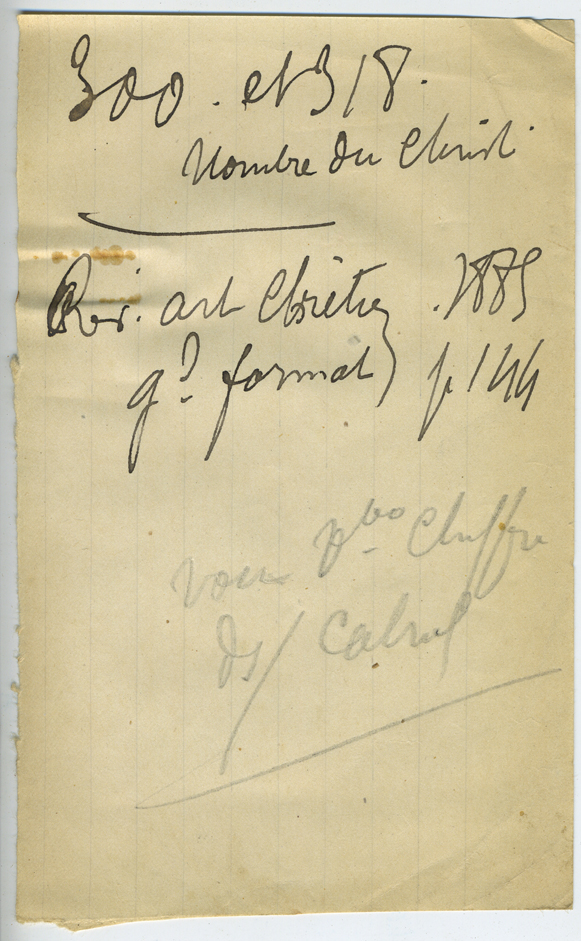 300. et 318.
Nombre du Christ
Rev. art Chrétien . 1885
gd format p 144
voir pbo Chiffre
ds/ Cabrol